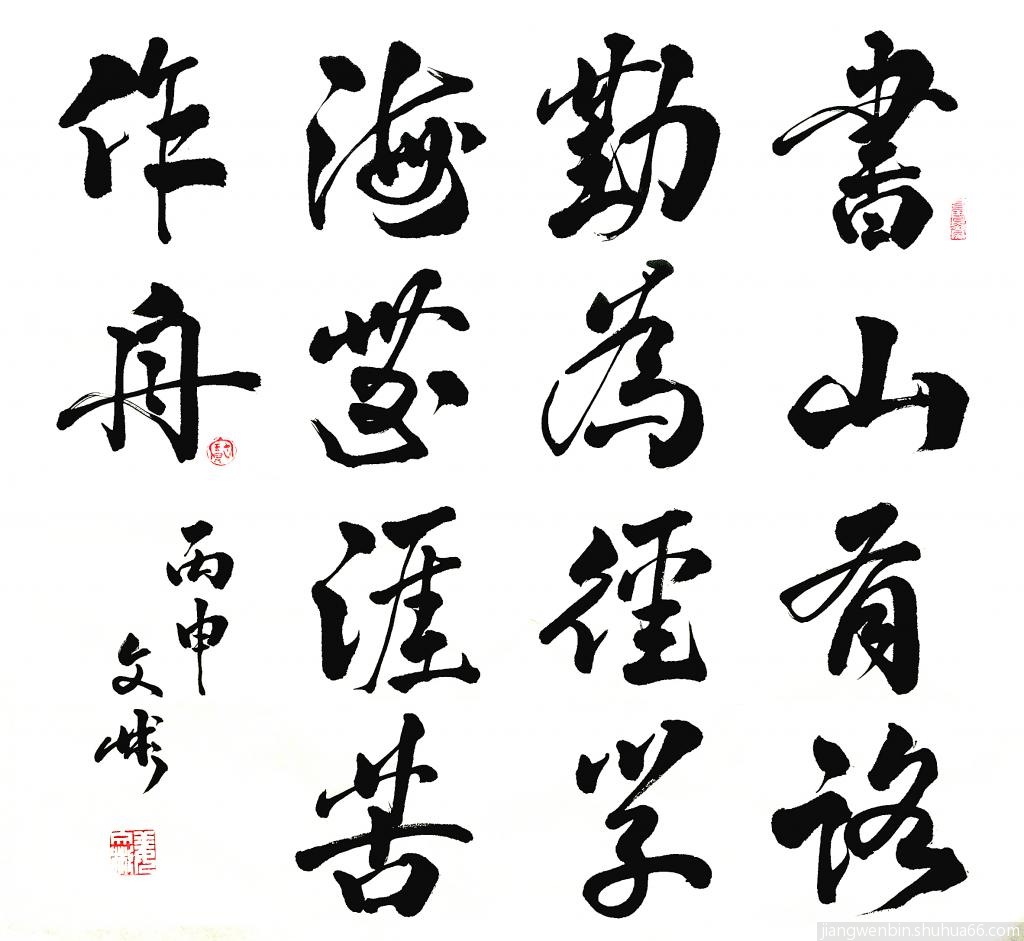 書山有路
勤為徑学
海無涯苦
作舟
丙申
文彬
jiangwenbin.shuhua66.com